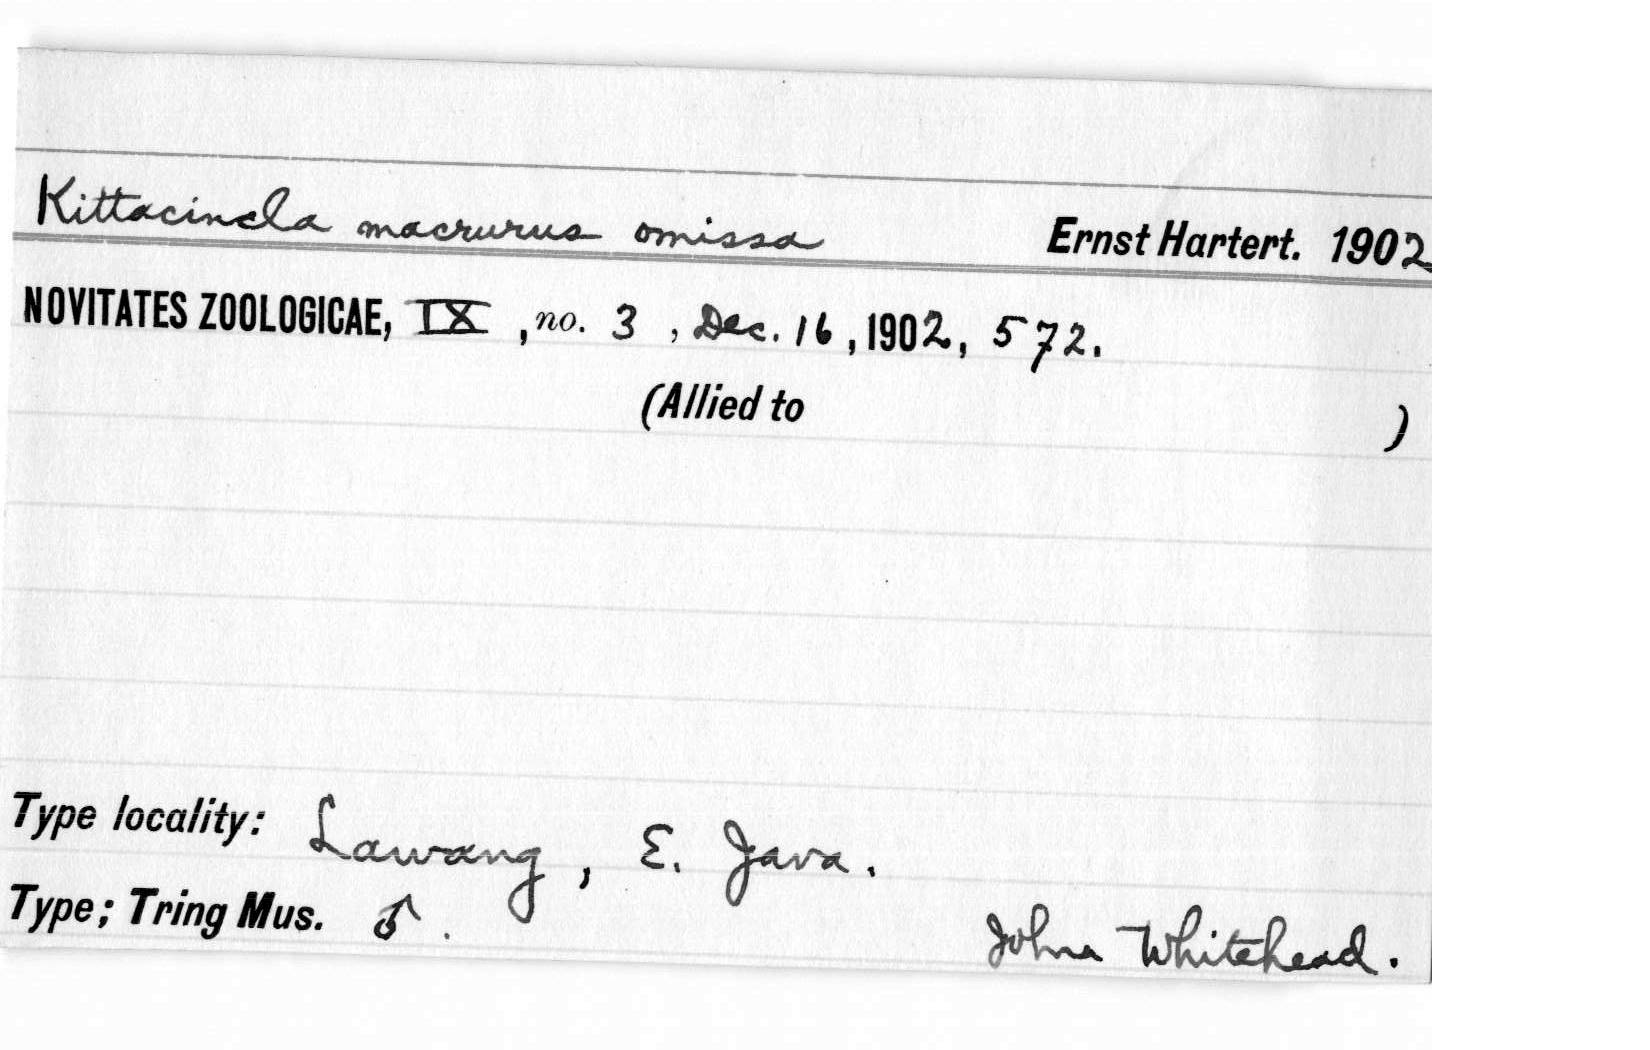 Kittacincla macrurus omissa Ernst Hartert. 1902
NOVITATES ZOOLOGICAE, IX, no. 3, Dec. 16, 1902, 572.
(Allied to )
Type locality: Lawang, E. Java.
Type; Tring Mus. ♂.
John Whitehead.